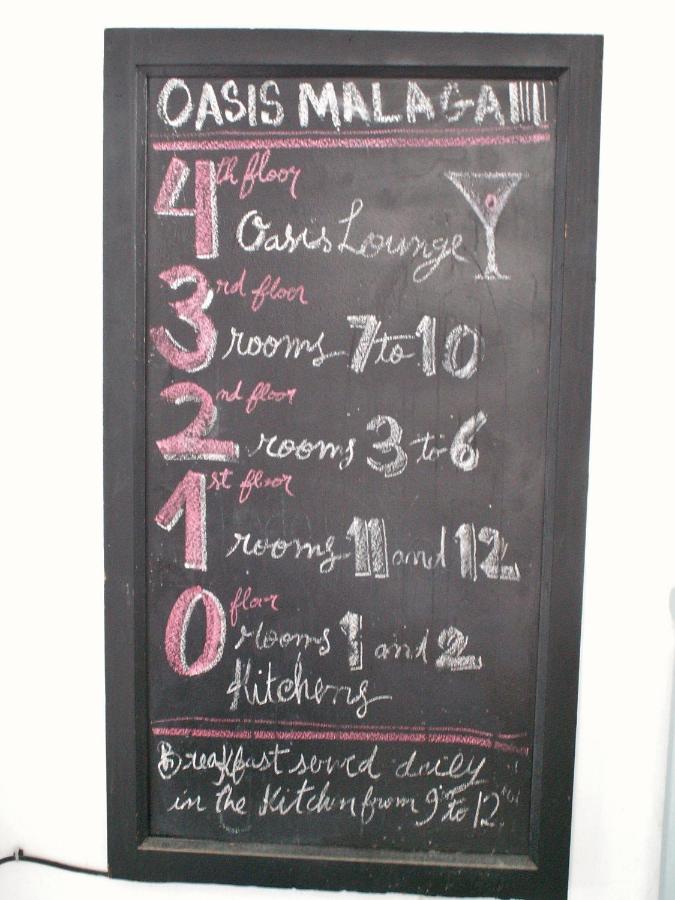 OASIS MALAGA
4th floor
Oasis Lounge
3rd floor
rooms 7 to 10
2nd floor
rooms 3 to 6
1st floor
rooms 11 and 12
0 floor
rooms 1 and 2
Kitchens
Breakfast served daily
in the Kitchen from 9 to 12